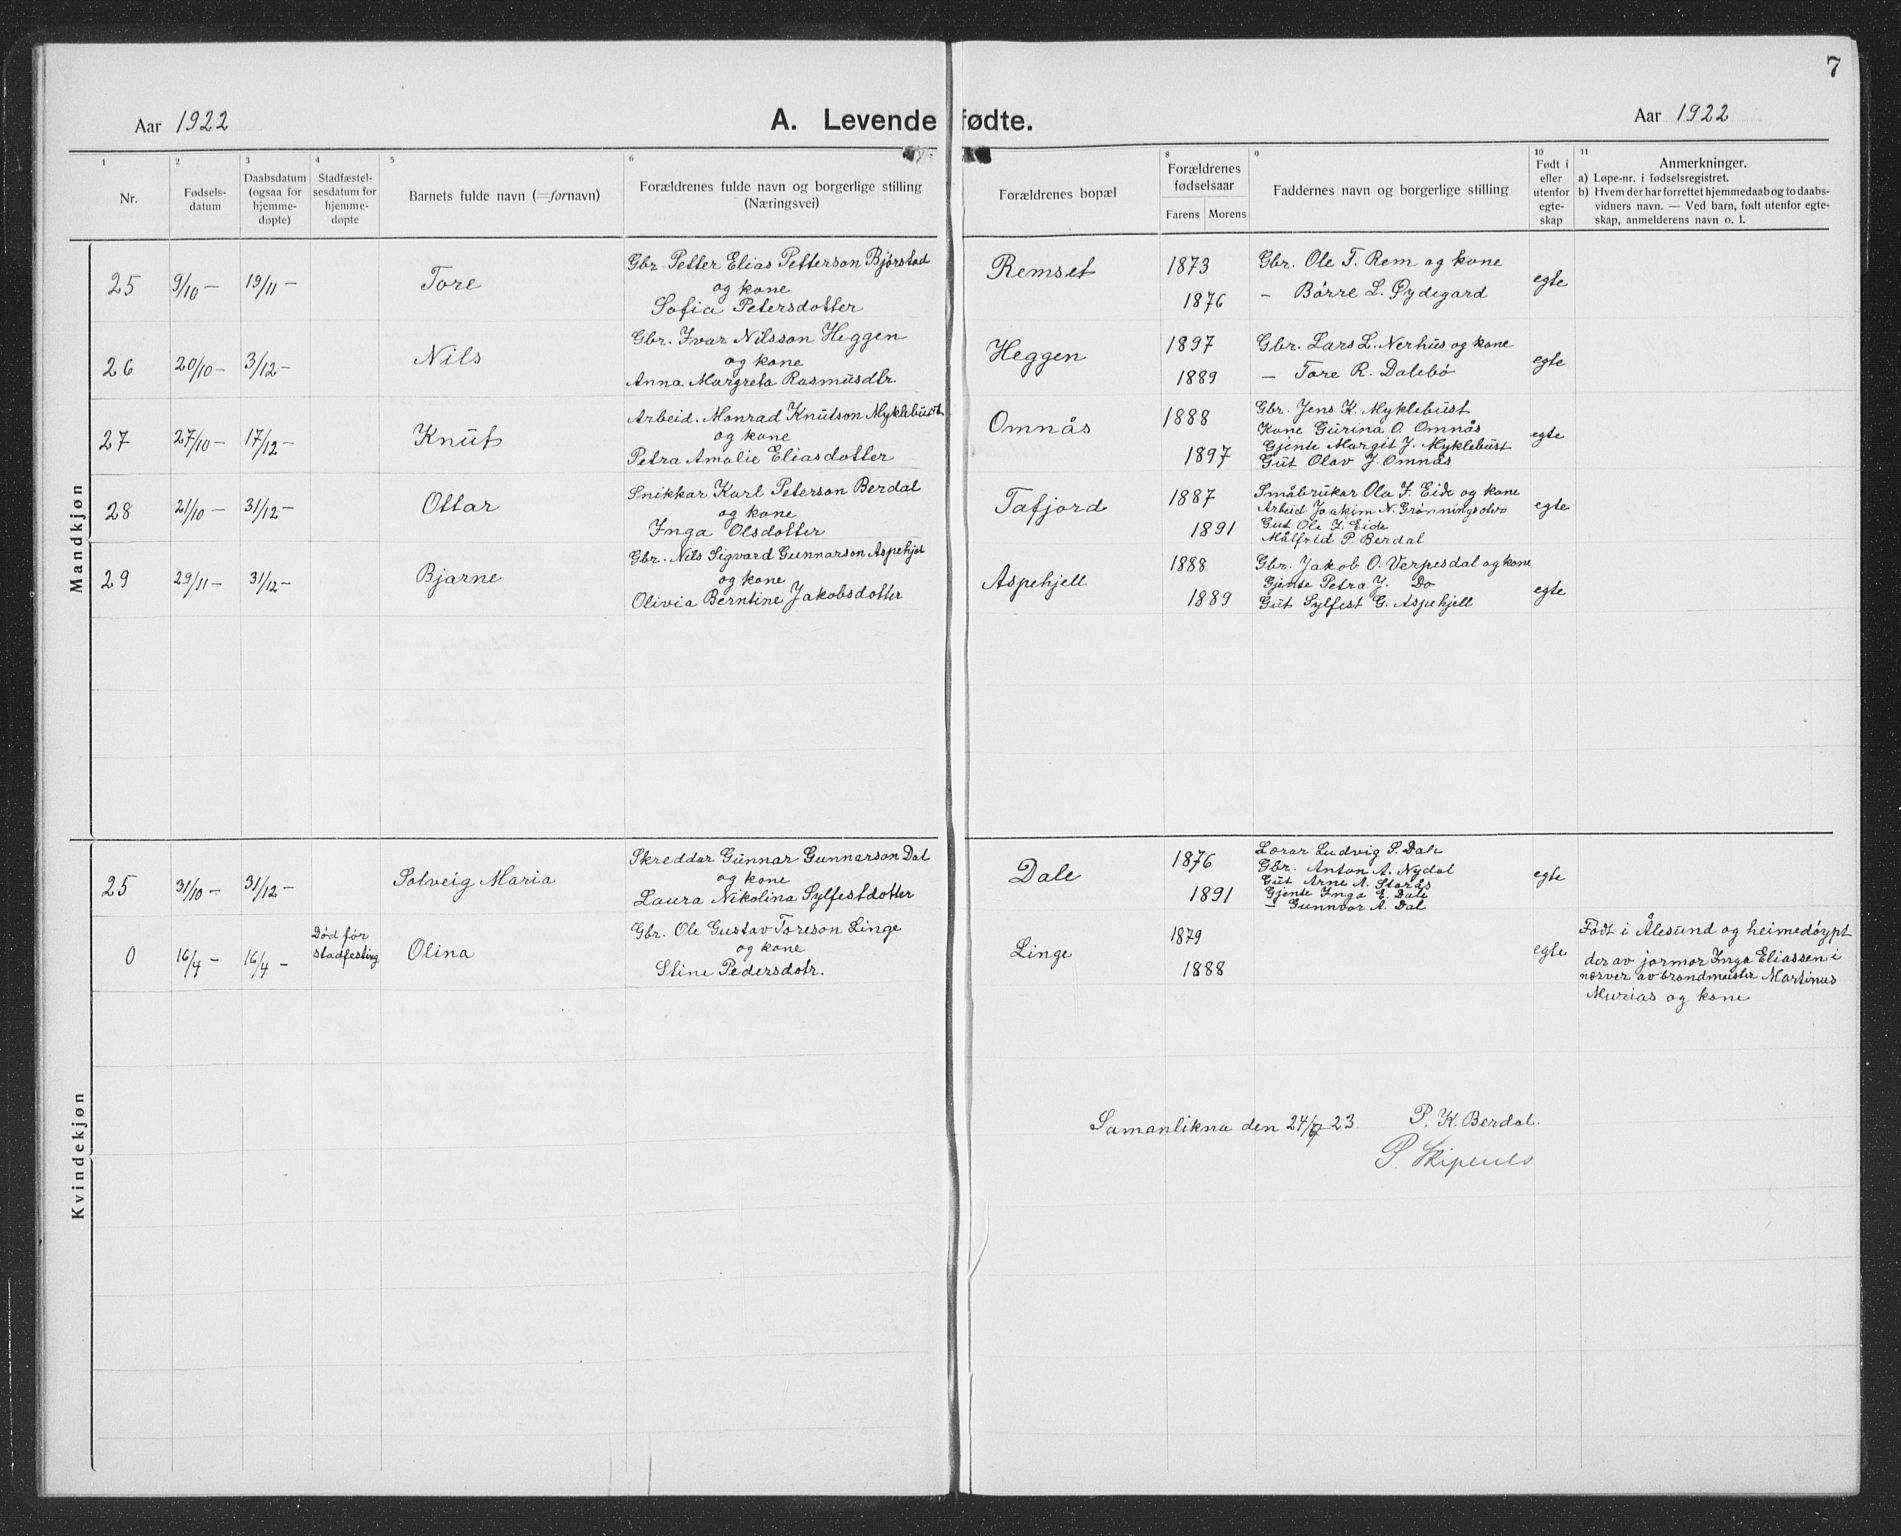 7
Aar 1922
A. Levendefødte.
Aar 1922
1 2 3 4 5 6 8 9 10 11
Nr.
Fødsels-
datum
Daabsdatum
(ogsaa for
hjemme-
døpte)
Stadfæstel-
sesdatum for
hjemme-
døpte
Barnets fulde navn (=fornavn)
Forældrenes fulde navn og borgerlige stilling
(Næringsvei)
Forældrenes bopæl
Forældrenes
fødselsaar
Farens Morens
Faddernes navn og borgerlige stilling
Født i
eller
utenfor
egte-
skap
Anmerkninger.
a) Løpe-nr. i fødselsregistret.
b) Hvem der har forrettet hjemmedaab og to daabs-
vidners navn. — Ved barn, født utenfor egte-
skap, anmelderens navn o. l.
Mandkjøn
25 9/10 — 19/11 — Tore
Gbr. Petter Elias Petterson Bjørstad
og kone
Sofia Petersdotter
Remset
1873
1876
Gbr. Ole T. Rem og kone
— Børre L. Øydegard
egte
26 20/10 — 3/12 — Nils
Gbr. Ivar Nilsson Heggen
og kone
Anna Margreta Rasmusdtr.
Heggen
1897
1889
Gbr. Lars L. Nerhus og kone
— Tore R. Dalebø
egte
27 27/10 — 17/12 — Knut
Arbeid. Monrad Knutson Myklebust
og kone
Petra Amalie Eliasdotter
Omnås
1888
1897
Gbr. Jens K. Myklebust
Kone Gurina O. Omnås
Gjente Margit J. Myklebust
Gut Olav J. Omnås
egte
28 21/10 — 31/12 — Ottar
Snikkar Karl Peterson Berdal
og kone
Inga Olsdotter
Tafjord
1887
1891
Småbrukar Ola I. Eide og kone
Arbeid Joakim N. Grønningsæter
Gut Ole I. Eide
Målfrid P. Berdal
egte
29 29/11 — 31/12 — Bjarne
Gbr. Nils Sigvard Gunnarson Aspehjel
og kone
Olivia Berntine Jakobsdotter
Aspehjell
1888
1889
Gbr. Jakob O. Verpesdal og kone
Gjente Petra J. Do
Gut Sylfest G. Aspehjell
egte
Kvindekjøn
25 31/10 — 31/12 — Solveig Maria
Skreddar Gunnar Gunnarson Dal
og kone
Laura Nikolina Sylfestdotter
Dale
1876
1891
Lærar Ludvig P. Dale
Gbr. Anton A. Nydal
Gut Arne A. Storås
Gjente Inga E. Dale
— Gunnvor A. Dal
egte
0 16/4 — 16/4 —
Død før
stadfesting
Olina
Gbr. Ole Gustav Toreson Linge
og kone
Stine Pedersdotr.
Linge
1879
1888
egte
Født i Ålesund og heimedøypt
der av jormor Inga Eliassen i
nærver av brandmeister Martinus
Murias og kone
Samanlikna den 24/7 23. P. K. Berdal.
P.